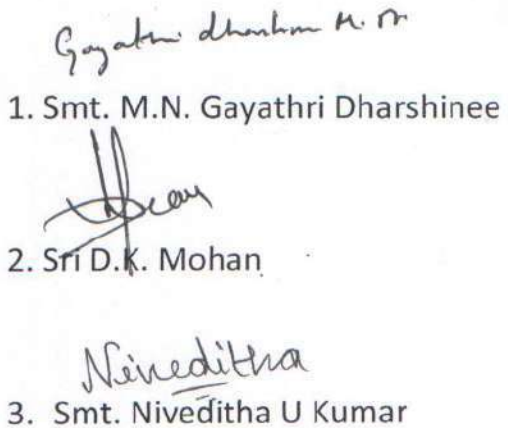 Gayathri dharshinee M. N
1. Smt. M.N. Gayathri Dharshinee
2. Sri D.K. Mohan
Niveditha
3. Smt. Niveditha U Kumar